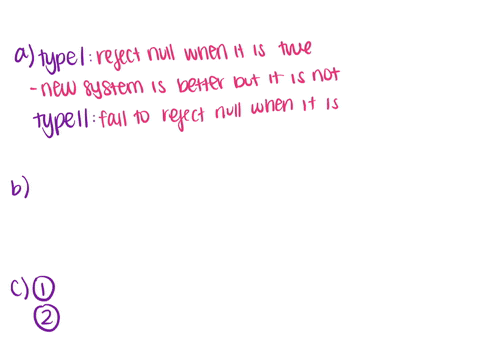 a) type I: reject null when it is true
- new system is better but it is not
type II: fail to reject null when it is
b)
c) ①
②